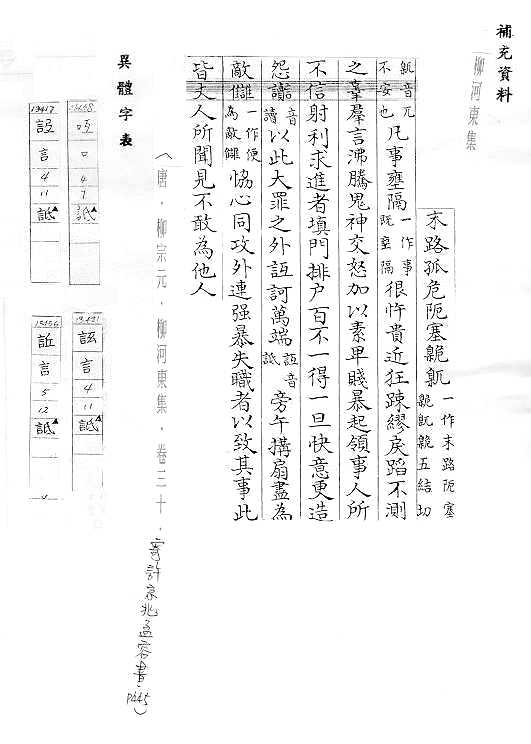 補充資料
柳河東集
末路孤危阨塞臲卼一作末路阨塞臲卼臲五結切
卼音兀不安也凡事壅隔一作事既壅隔很忤貴近狂疎繆戾蹈不測
之辜羣言沸騰鬼神交怒加以素卑賤暴起領事人所
不信射利求進者填門排户百不一得一旦快意更造
怨讟音讀以此大罪之外詆訶萬端詆音詆旁午搆扇盡為
敵讎一作便為敵讎恊心同攻外連强暴失職者以致其事此
皆丈人所聞見不敢為他人
（唐．柳宗元．柳河東集．卷三十．寄許京兆孟容書 P445）
異體字表
口
4
7
詆
13417
言
4
11
詆
13421
言
4
11
詆
言
5
12
詆